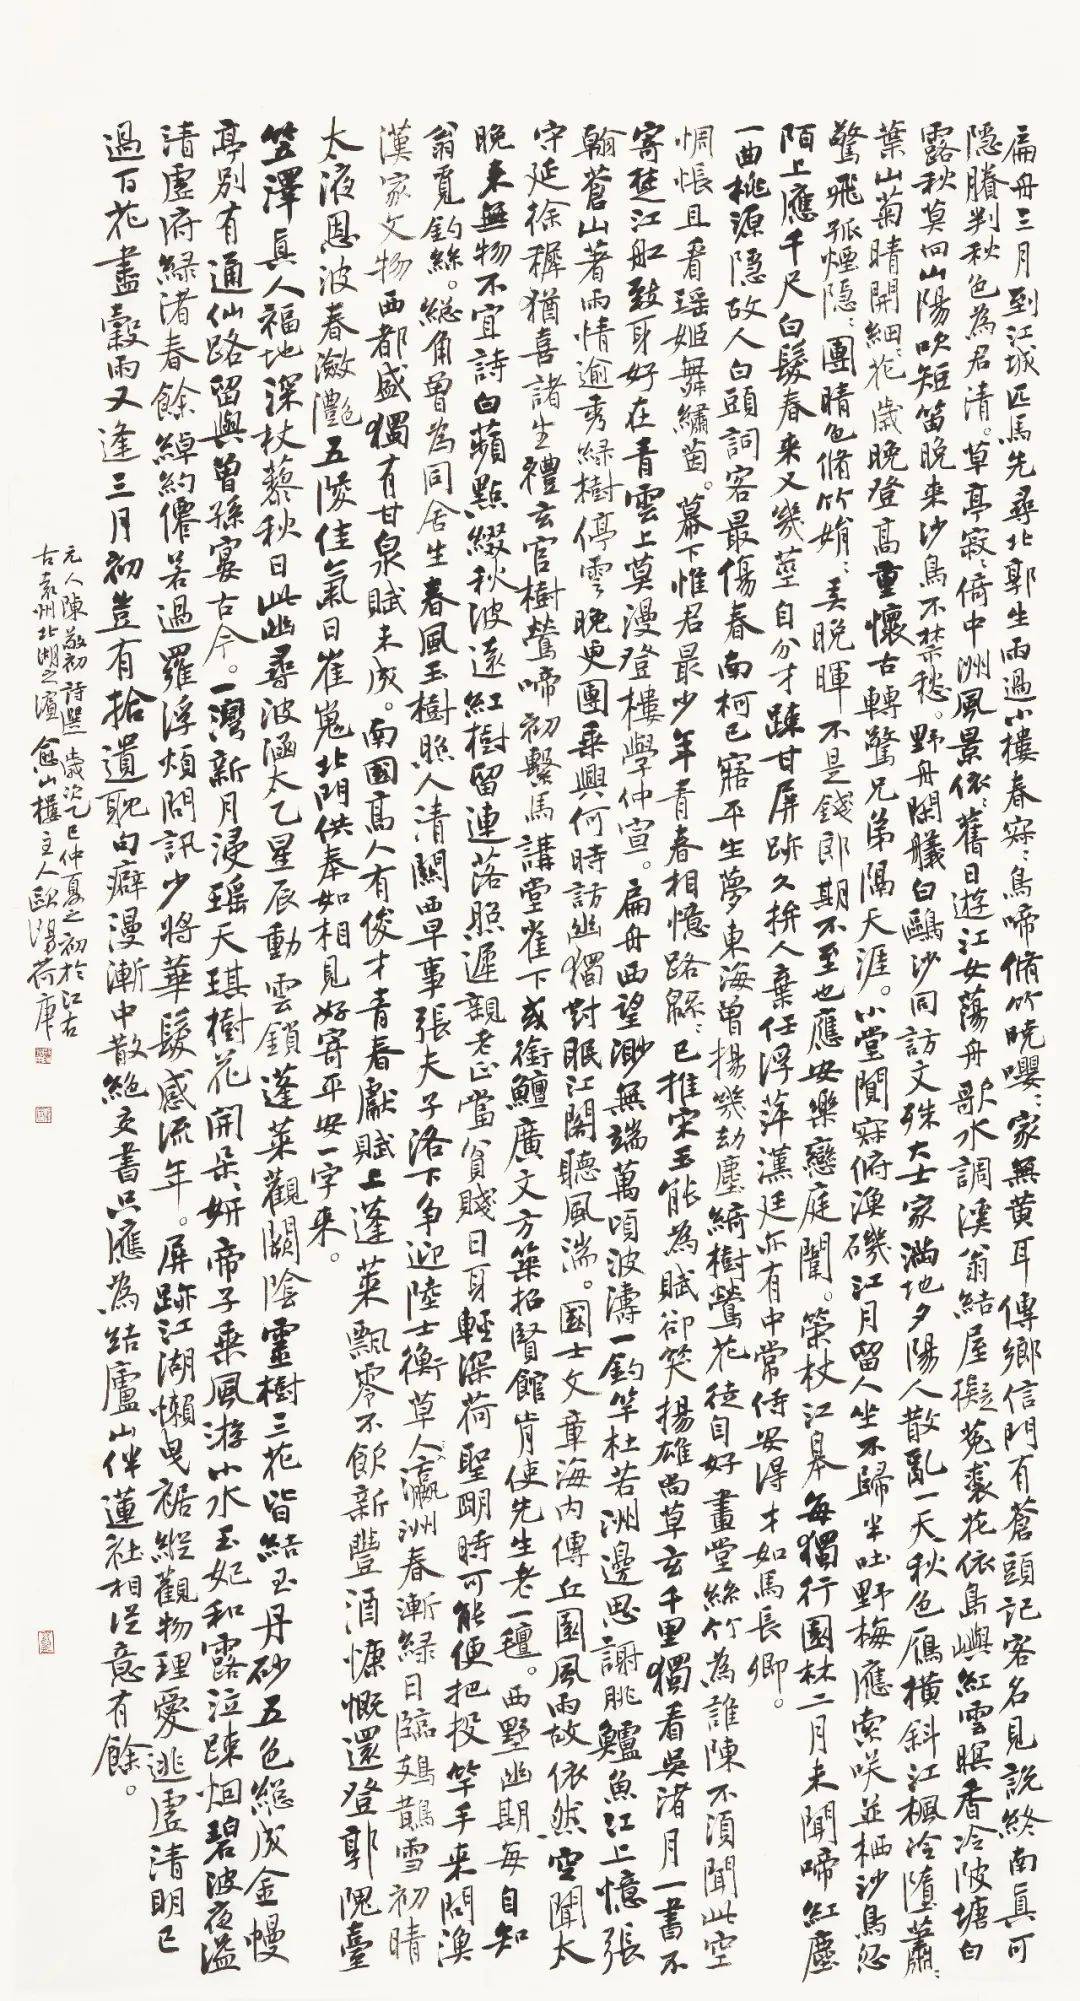 扁舟三月到江城匹馬先尋北郭生雨過小樓春寂〻鳥啼脩竹曉嚶〻家無黃耳傳鄉信門有蒼頭記客名見說終南真可
隱賸判秋色為君清。草亭寂〻倚中洲風景依〻舊日遊江女蕩舟歌水調溪翁結屋擬菟裘花依島嶼紅雲暝香冷陂塘白
露秋莫向山陽吹短笛晚來沙鳥不禁愁。野舟閑艤白鷗沙同訪文殊大士家滿地夕陽人散亂一天秋色鴈橫斜江楓冷墮蕭〻
葉山菊晴開細〻花歲晚登高重懷古轉驚兄弟隔天涯。小堂閴寂俯漁磯江月留人坐不歸半吐野梅應索咲並栖沙鳥忽
驚飛孤煙隱〻團晴色脩竹娟〻弄晚暉不是錢郎期不至也應安樂戀庭闈。策杖江皋每獨行園林二月未聞啼紅塵
陌上應千尺白髮春來又幾莖自分才疎甘屏跡久拚人棄任浮萍漢廷亦有中常侍安得才如馬長卿。
一曲桃源隱故人白頭詞客最傷春南柯已寤平生夢東海曾揚幾劫塵綺樹鶯花徒自好畫堂絲竹為誰陳不須聞此空
惆悵且看瑶姬舞繡茵。幕下惟君最少年青春相憶路緜〻已推宋玉能為賦卻笑揚雄尚草玄千里獨看吳渚月一書不
寄楚江船致身好在青雲上莫漫登樓學仲宣。扁舟西望渺無端萬頃波濤一釣竿杜若洲邊思謝朓鱸魚江上憶張
翰蒼山著雨情逾秀綠樹停雲晚更團乘興何時訪幽獨對眠江閣聽風湍。國士文章海內傳丘園風雨故依然空聞太
守延徐穉猶喜諸生禮玄官樹鶯啼初繫馬講堂雀下或銜鱣廣文方築招賢館肯使先生老一氊。西墅幽期每自知
晚來無物不宜詩白蘋點綴秋波遠紅樹留連落照遲親老正當貧賤日身輕深荷聖明時可能便把投竿手來問漁
翁覓釣絲。總角曾為同舍生春風玉樹照人清關西早事張夫子洛下争迎陸士衡草人瀛洲春漸綠日臨鳷鵲雪初晴
漢家文物西都盛獨有甘泉賦未成。南國高人有俊才青春獻賦上蓬萊飄零不飲新豐酒慷慨還登郭隗臺
太液恩波春瀲灩五陵佳氣日崔嵬北門供奉如相見好寄平安一字來。
笠澤真人福地深杖藜秋日此幽尋波涵太乙星辰動雲鎖蓬萊觀闕陰靈樹三花皆結玉丹砂五色總成金幔
亭別有通仙路留與曾孫宴古今。一灣新月浸瑶天琪樹花開朵〻妍帝子乘風游小水玉妃和露泣疎烟碧波夜溢
清虛府綠渚春餘綽約僊若過羅浮煩問訊少將華髮感流年。屏跡江湖懶曳裾縱觀物理愛逃虛清明已
過百花盡穀雨又逢三月初豈有拾遺耽句癖漫漸中散絕交書只應為結廬山伴蓮社相從意有餘。
元人陳敬初詩選歲次乙巳仲夏之初於江右
古袁州北湖之濱愈山樓主人歐陽荷庚